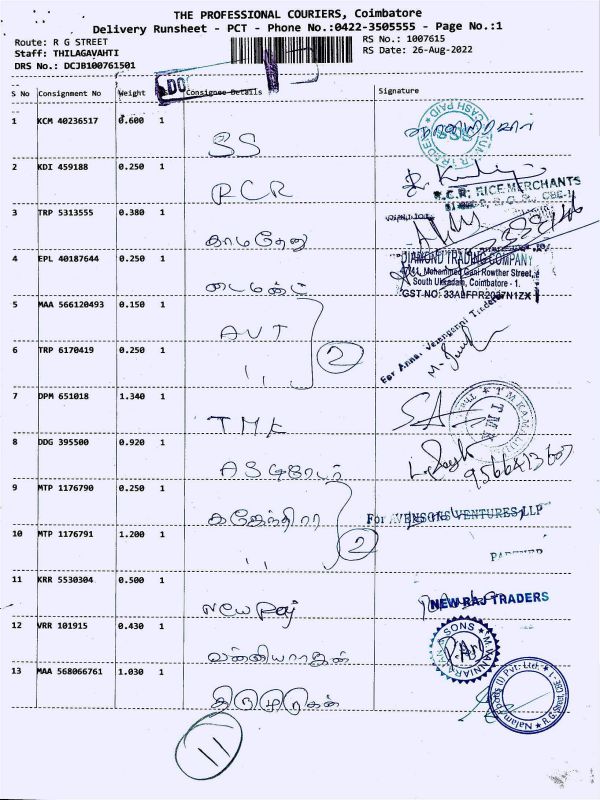 THE PROFESSIONAL COURIERS, Coimbatore
Delivery Runsheet - PCT - Phone No.:0422-3505555 - Page No.:1
Route: R G STREET
RS No.: 1007615
Staff: THILAGAVAHTI
RS Date: 26-Aug-2022
DRS No.: DCJB100761501
S No Consignment No Weight Consignee Details Signature
1 KCM 40236517 0.600 1 SS
2 KDI 459188 0.250 1 RCR
R.C.R. RICE MERCHANTS
3 TRP 5313555 0.380 1 காமதேனு
4 EPL 40187644 0.250 1 டைமண்ட்
DIAMOND TRADING COMPANY
Mohammed Gani Rowther Street,
South Ukkadam, Coimbatore - 1.
5 MAA 566120493 0.150 1 AVT
6 TRP 6170419 0.250 1 ,, 2
For Annai Velanganni Traders
7 DPM 651018 1.340 1 TMK
TMK
8 DDG 395500 0.920 1
9 MTP 1176790 0.250 1 கஜேந்திரா
For AVENSONS VENTURES LLP
10 MTP 1176791 1.200 1 ,, 2
PARTNER
11 KRR 5530304 0.500 1 New Raj
NEW RAJ TRADERS
12 VRR 101915 0.430 1 வன்னியராஜன்
13 MAA 568066761 1.030 1 திருமுருகன்
11